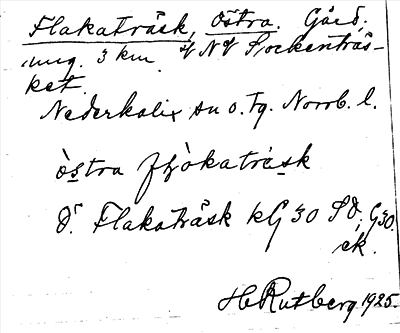 Flakaträsk, Östra. Gård,
ung. 3 km V NV Sockenträs-
ket.
Nederkalix sn o. tg. Norrb. l.
östra fḷòkaträsk
Ö. Flakaträsk kG 30 Sö, G30.
ek.
H. Rutberg 1925.